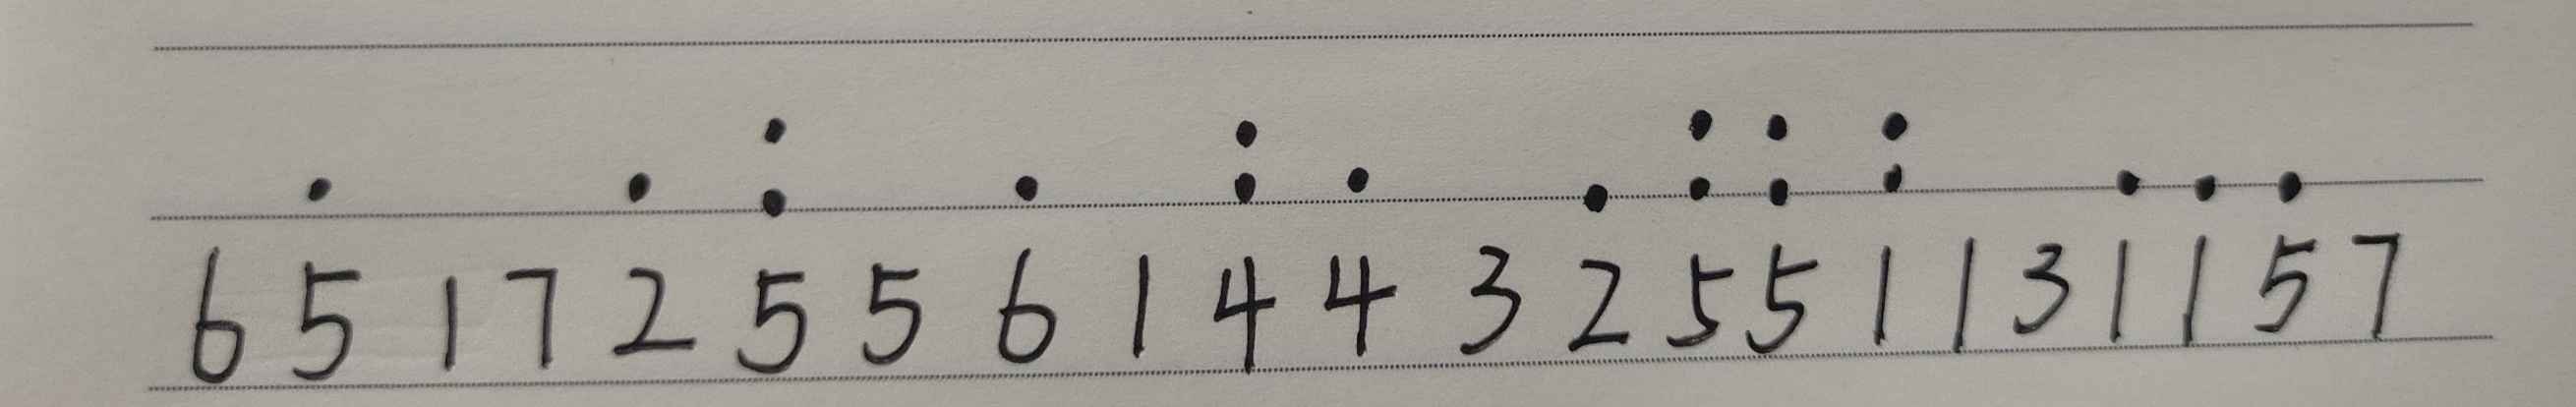 6 5 1 7 2 5 5 6 1 4 4 3 2 5 5 1 1 3 1 1 5 7